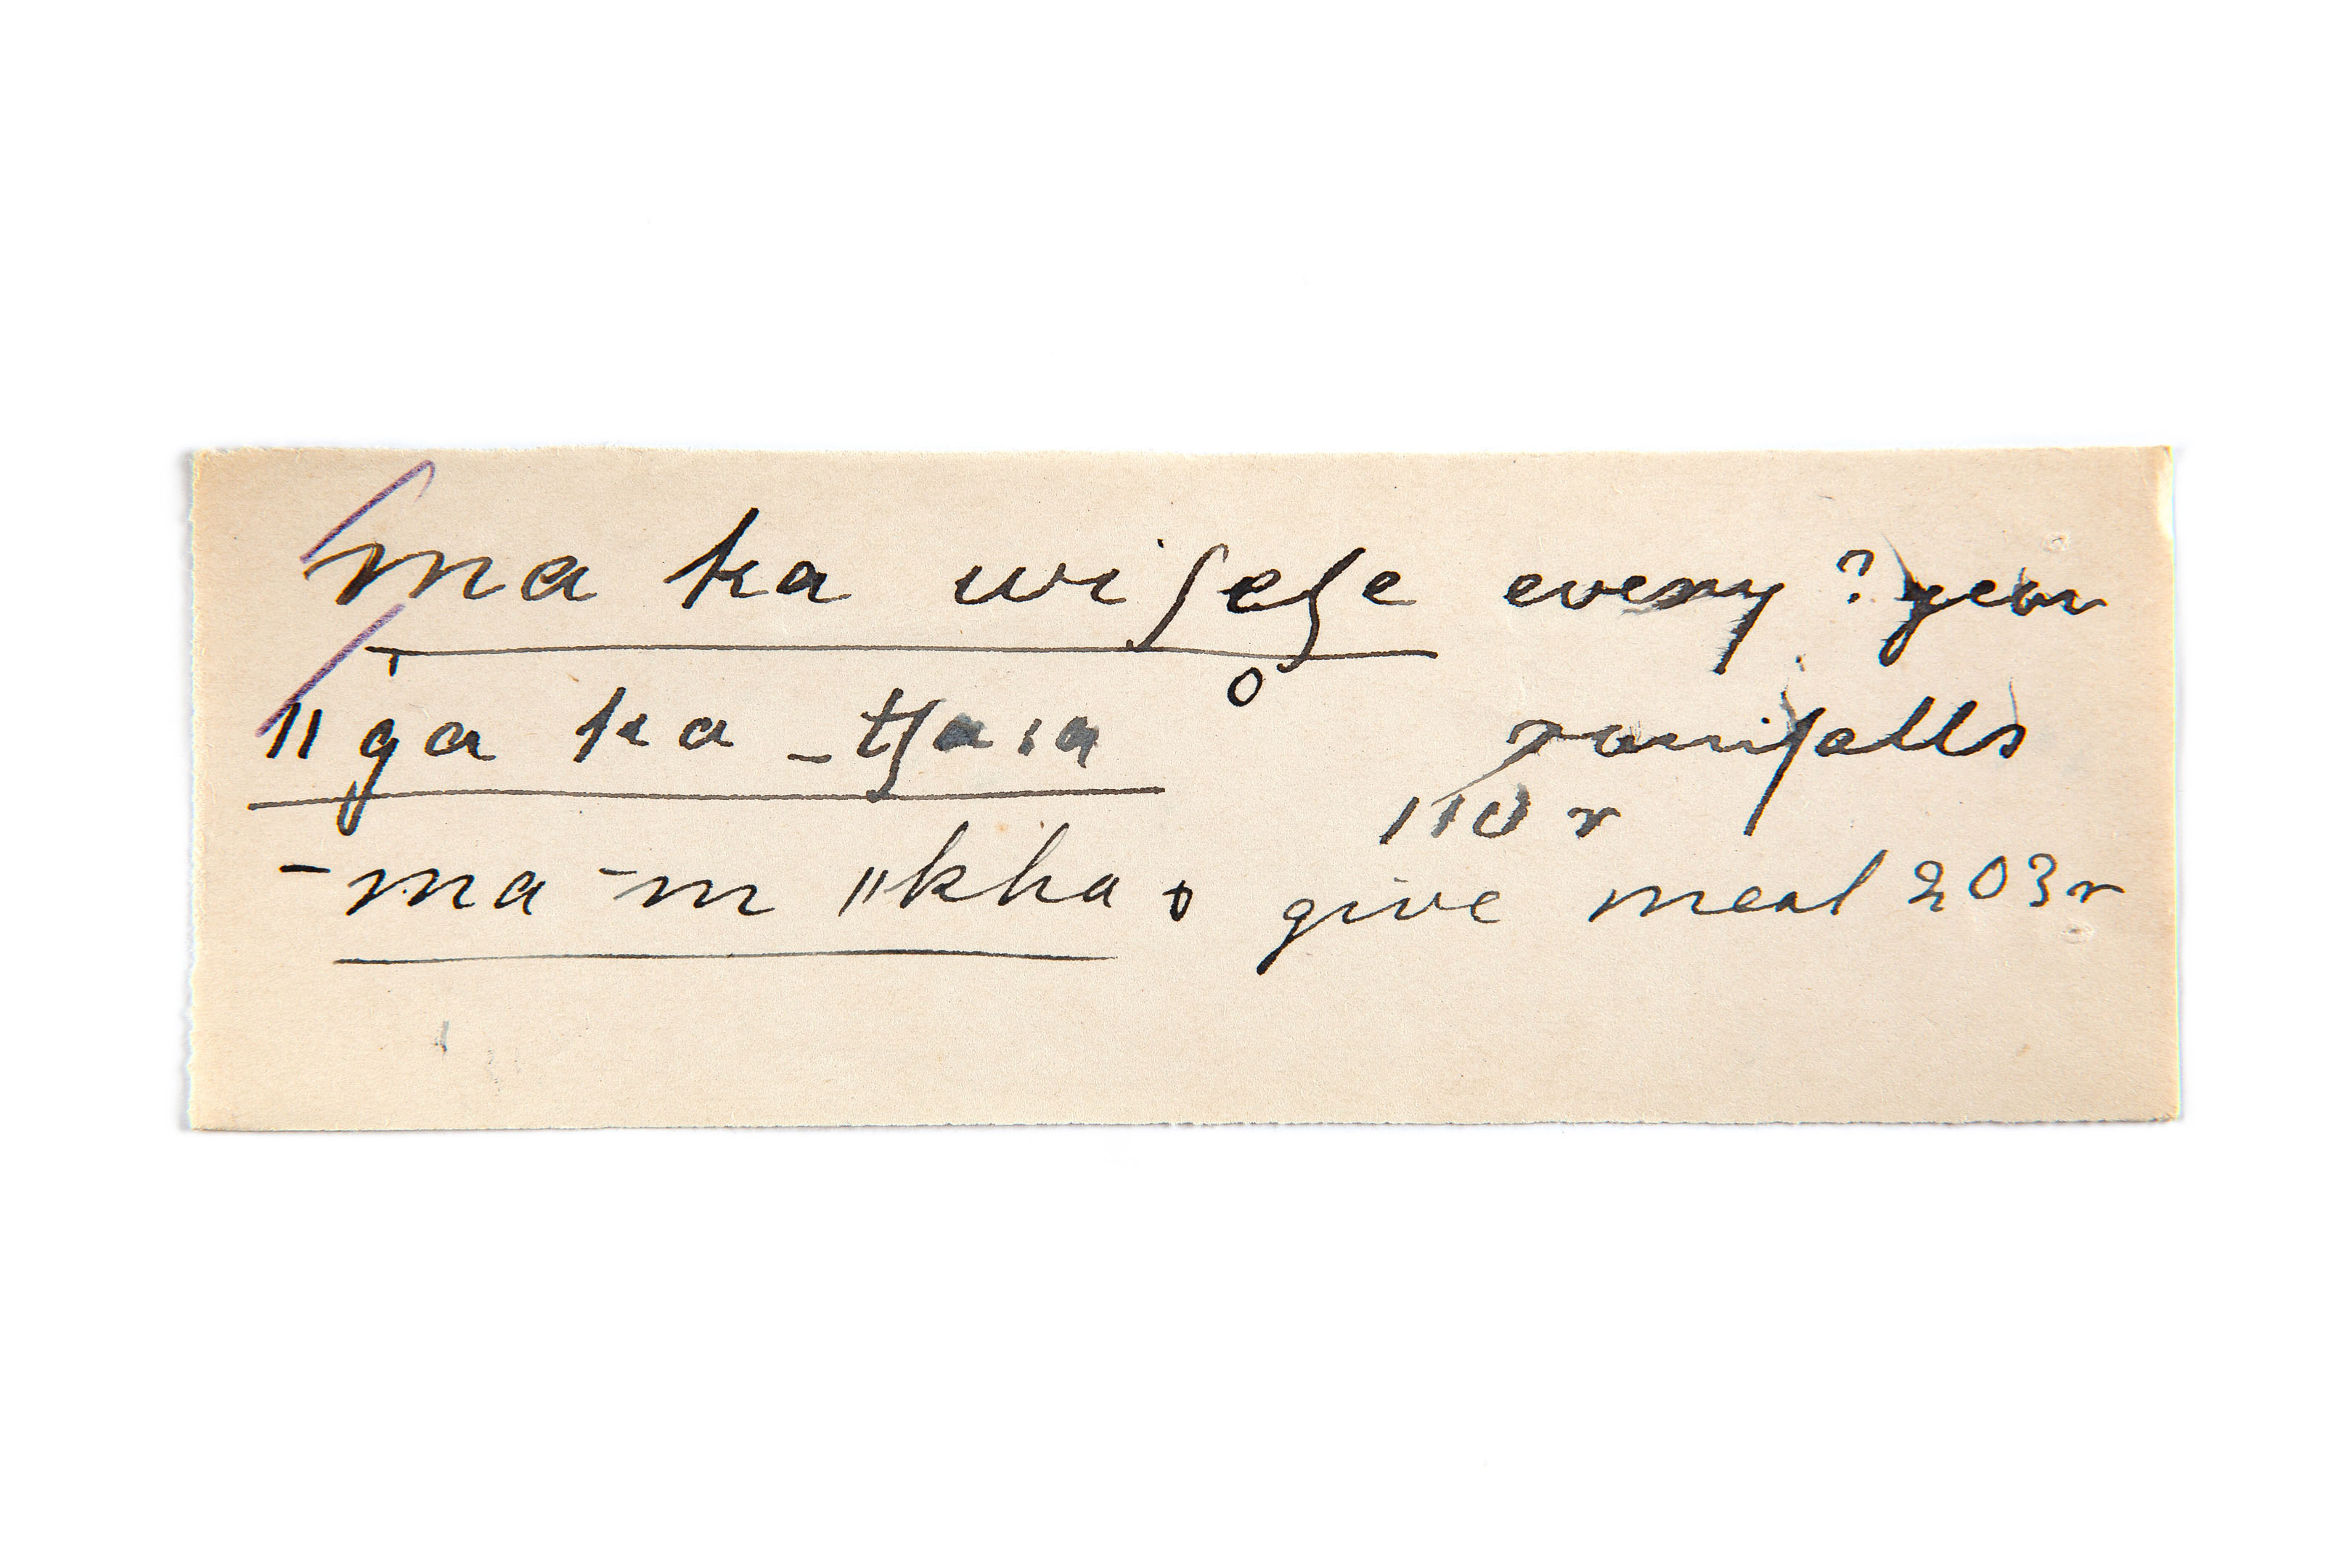 ma ka wiʃeʃe every? year
ǁga ka _tʃaıa rainfalls
110 r
¯ma ¯m ǁkha give meal 203 r